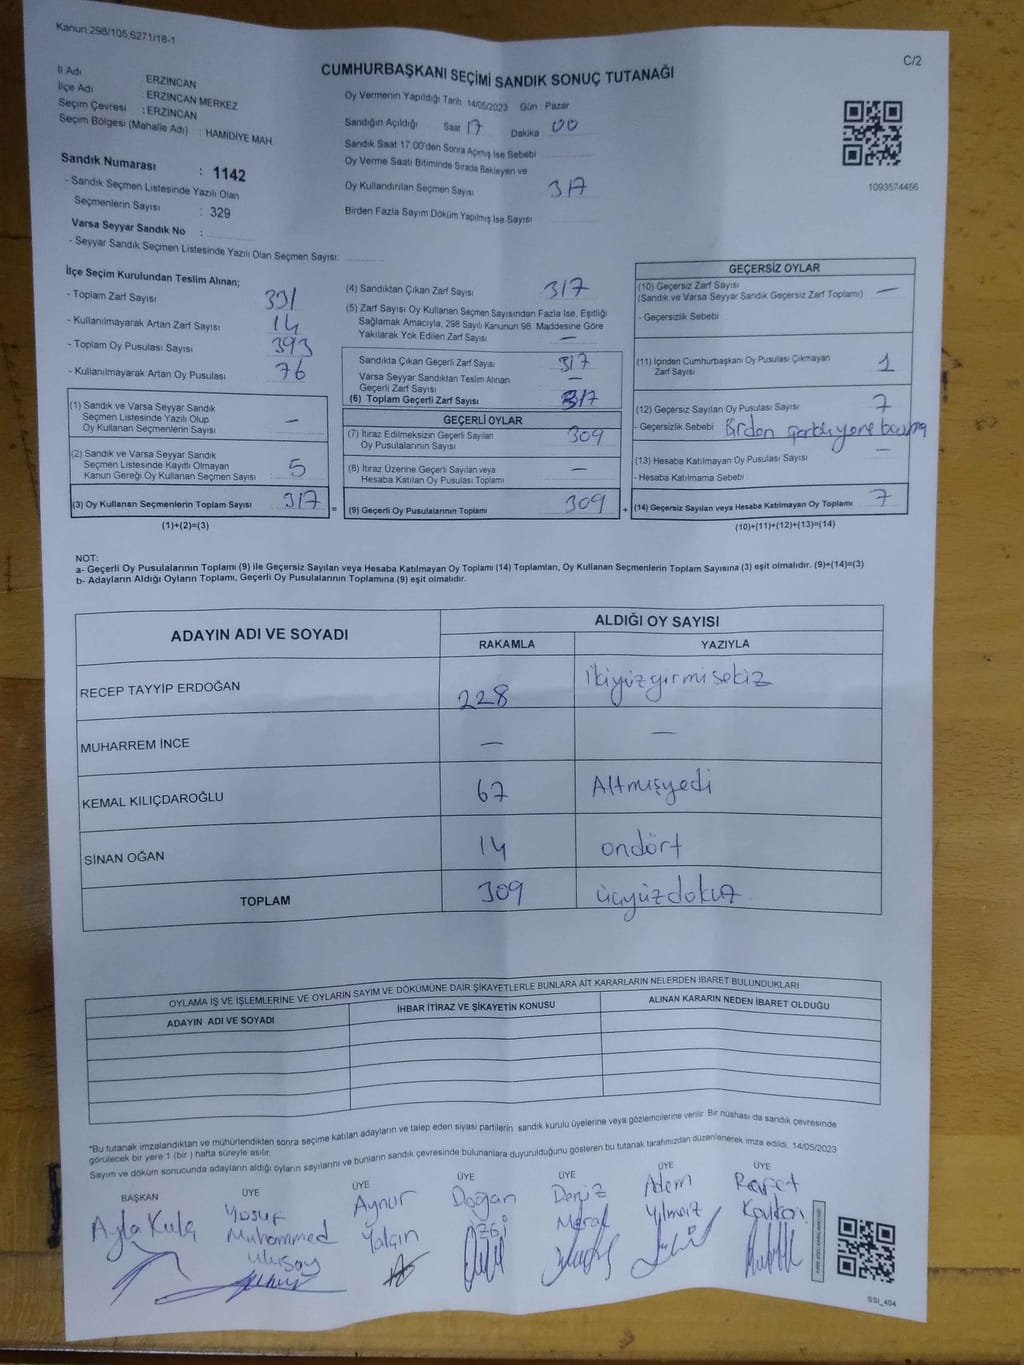 Kanun:298/105;6271/18-1
C/2
CUMHURBAŞKANI SEÇİMİ SANDIK SONUÇ TUTANAĞI
İl Adı ERZİNCAN
İlçe Adı : ERZİNCAN MERKEZ
Seçim Çevresi : ERZİNCAN
Seçim Bölgesi (Mahalle Adı) : HAMİDİYE MAH
Sandık Numarası : 1142
- Sandık Seçmen Listesinde Yazılı Olan
Seçmenlerin Sayısı : 329
Varsa Seyyar Sandık No :
- Seyyar Sandık Seçmen Listesinde Yazılı Olan Seçmen Sayısı:
Oy Vermenin Yapıldığı Tarih 14/05/2023 Gün Pazar
Sandığın Açıldığı Saat 17 Dakika 00
Sandık Saat 17.00'den Sonra Açımış İse Sebebi
Oy Verme Saati Bitiminde Sırada Bekleyen ve
Oy Kullandırılan Seçmen Sayısı 317
Birden Fazla Sayım Döküm Yapılmış İse Sayısı
1093574456
İlçe Seçim Kurulundan Teslim Alınan;
- Toplam Zarf Sayısı 331
- Kullanılmayarak Artan Zarf Sayısı 14
- Toplam Oy Pusulası Sayısı 393
- Kullanılmayarak Artan Oy Pusulası 76
(1) Sandık ve Varsa Seyyar Sandık
Seçmen Listesinde Yazılı Olup
Oy Kullanan Seçmenlerin Sayısı —
(2) Sandık ve Varsa Seyyar Sandık
Seçmen Listesinde Kayıtlı Olmayan
Kanun Gereği Oy Kullanan Seçmen Sayısı : 5
(3) Oy Kullanan Seçmenlerin Toplam Sayısı 317 =
(1)+(2)=(3)
(4) Sandıktan Çıkan Zarf Sayısı 317
(5) Zarf Sayısı Oy Kullanan Seçmen Sayısından Fazla İse, Eşitliği
Sağlamak Amacıyla, 298 Sayılı Kanunun 98. Maddesine Göre
Yakılarak Yok Edilen Zarf Sayısı —
Sandıkta Çıkan Geçerli Zarf Sayısı 317
Varsa Seyyar Sandıktan Teslim Alınan
Geçerli Zarf Sayısı —
(6) Toplam Geçerli Zarf Sayısı 317
GEÇERLİ OYLAR
(7) İtiraz Edilmeksizin Geçerli Sayılan
Oy Pusulalarının Sayısı 309
(8) İtiraz Üzerine Geçerli Sayılan veya
Hesaba Katılan Oy Pusulası Toplamı —
(9) Geçerli Oy Pusulalarının Toplamı 309 +
GEÇERSİZ OYLAR
(10) Geçersiz Zarf Sayısı —
(Sandık ve Varsa Seyyar Sandık Geçersiz Zarf Toplamı)
- Geçersizlik Sebebi
(11) İçinden Cumhurbaşkanı Oy Pusulası Çıkmayan
Zarf Sayısı 1
(12) Geçersiz Sayılan Oy Pusulası Sayısı 7
- Geçersizlik Sebebi Birden
(13) Hesaba Katılmayan Oy Pusulası Sayısı —
- Hesaba Katılmama Sebebi
(14) Geçersiz Sayılan veya Hesaba Katılmayan Oy Toplamı 7
(10)+(11)+(12)+(13)=(14)
NOT:
a- Geçerli Oy Pusulalarının Toplamı (9) ile Geçersiz Sayılan veya Hesaba Katılmayan Oy Toplamı (14) Toplamları, Oy Kullanan Seçmenlerin Toplam Sayısına (3) eşit olmalıdır. (9)+(14)=(3)
b- Adayların Aldığı Oyların Toplamı, Geçerli Oy Pusulalarının Toplamına (9) eşit olmalıdır.
ADAYIN ADI VE SOYADI
ALDIĞI OY SAYISI
RAKAMLA YAZIYLA
RECEP TAYYİP ERDOĞAN 228 İkiyüzyirmisekiz
MUHARREM İNCE — —
KEMAL KILIÇDAROĞLU 67 Altmışyedi
SİNAN OĞAN 14 ondört
TOPLAM 309 üçyüzdokuz
OYLAMA İŞ VE İŞLEMLERİNE VE OYLARIN SAYIM VE DÖKÜMÜNE DAİR ŞİKAYETLERLE BUNLARA AİT KARARLARIN NELERDEN İBARET BULUNDUKLARI
ADAYIN ADI VE SOYADI İHBAR İTİRAZ VE ŞİKAYETİN KONUSU ALINAN KARARIN NEDEN İBARET OLDUĞU
*Bu tutanak imzalandıktan ve mühürlendikten sonra seçime katılan adayların ve talep eden siyasi partilerin sandık kurulu üyelerine veya gözlemcilerine verilir. Bir nüshası da sandık çevresinde
görülecek bir yere 1 (bir ) hafta süreyle asılır.
Sayım ve döküm sonucunda adayların aldığı oyların sayılarını ve bunların sandık çevresinde bulunanlara duyurulduğunu gösteren bu tutanak tarafımızdan düzenlenerek imza edildi. 14/05/2023
BAŞKAN ÜYE ÜYE ÜYE ÜYE ÜYE ÜYE
Ayla Kulaç Yusuf Muhammed Ulusoy Aynur Yalçın Doğan Deniz Meral Adem Yılmaz Rafet
SSI_404